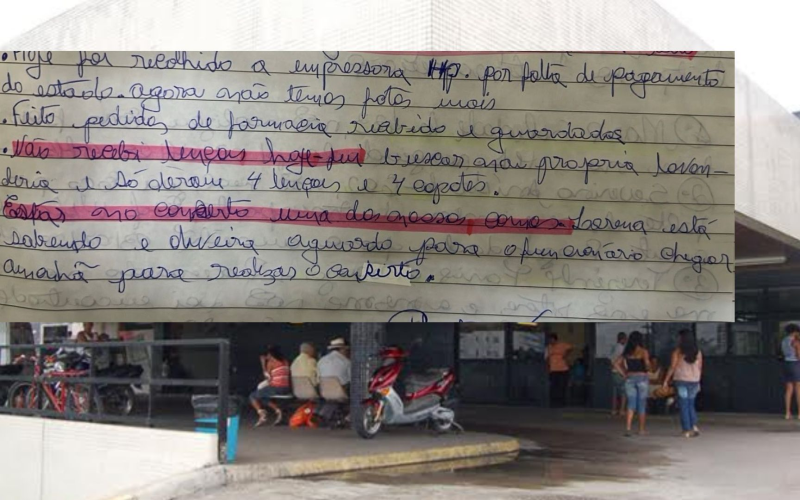 . Hoje foi recolhido a empressora HP. por falta de pagamento
do estado. agora não temos fotos mais
. Feito pedidos de farmacia recibido e guardados
. Não recebi lençois hoje fui buscar na propria lavan-
deria e só deram 4 lençois e 4 capotes.
Estar no conserto uma das nossas camas. está
sabendo e oliveira aguardo para o funcionário chegar
amanhã para realizar o conserto.